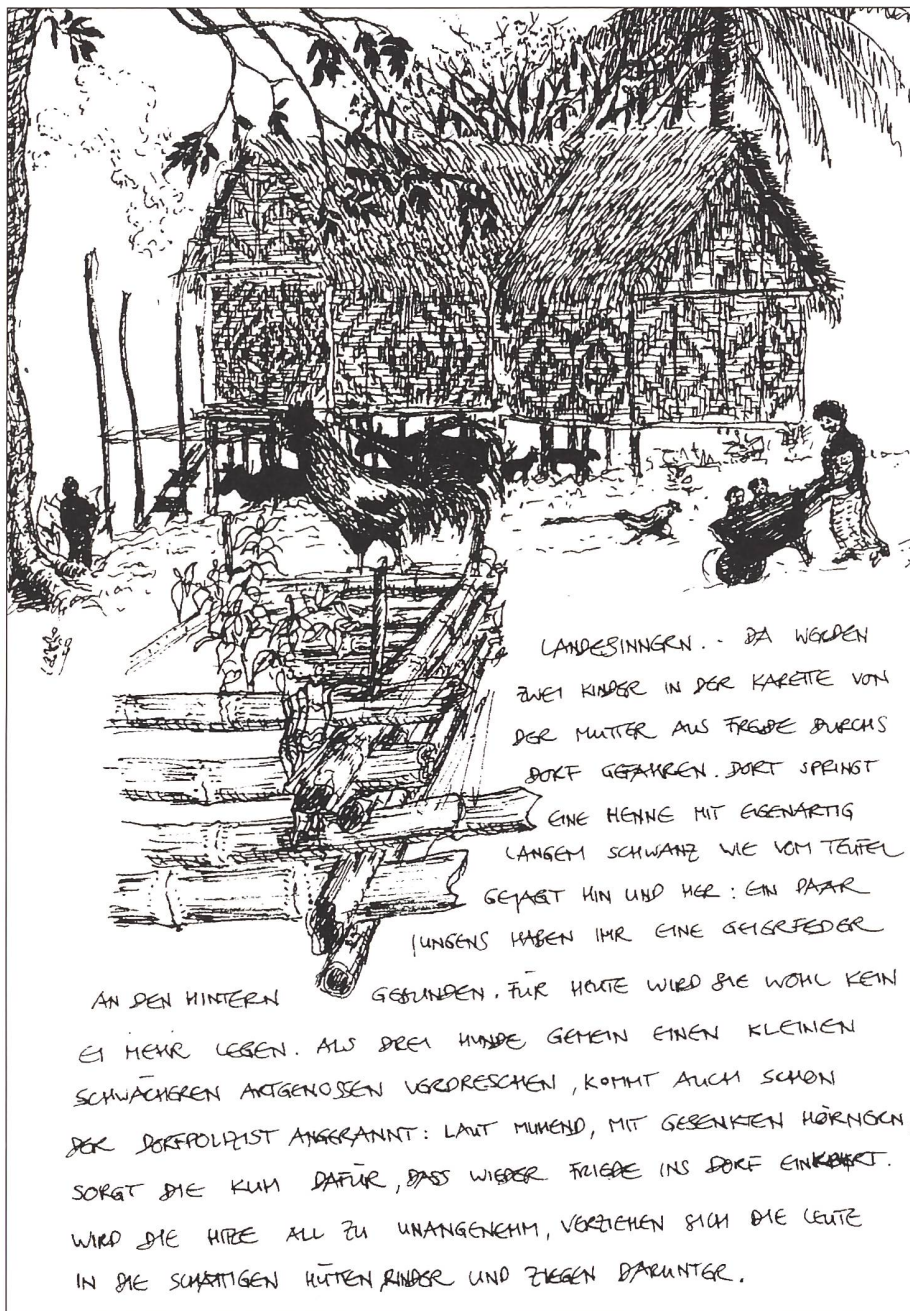 LANDESINNERN. . DA WERDEN
ZWEI KINDER IN DER KARETTE VON
DER MUTTER AUS FREUDE DURCHS
DORF GEFAHREN. DORT SPRINGT
EINE HENNE MIT EIGENARTIG
LANGEM SCHWANZ WIE VOM TEUFEL
GEJAGT HIN UND HER : EIN PAAR
JUNGENS HABEN IHR EINE GEIERFEDER
AN DEN HINTERN GEBUNDEN. FÜR HEUTE WIRD SIE WOHL KEIN
EI MEHR LEGEN. ALS DREI HUNDE GEMEIN EINEN KLEINEN
SCHWÄCHEREN ARTGENOSSEN VERDRESCHEN, KOMMT AUCH SCHON
DER DORFPOLIZIST ANGERANNT: LAUT MUHEND, MIT GESENKTEN HÖRNERN
SORGT DIE KUH DAFÜR, DASS WIEDER FRIEDE INS DORF EINKEHRT.
WIRD DIE HITZE ALL ZU UNANGENEHM, VERZIEHEN SICH DIE LEUTE
IN DIE SCHATTIGEN HÜTTEN, RINDER UND ZIEGEN DARUNTER.